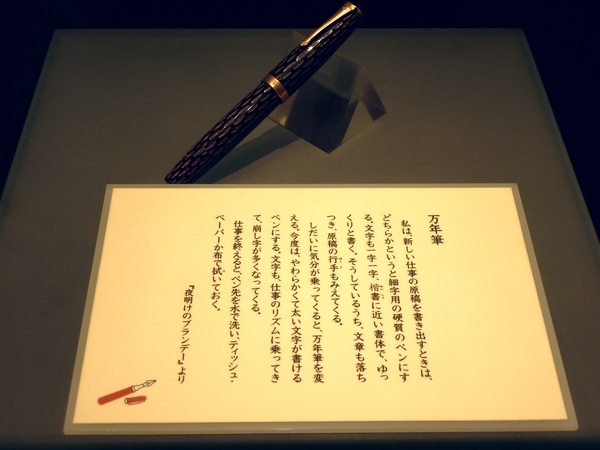 万年筆
私は、新しい仕事の原稿を書き出すときは、
どちらかというと細字用の硬質のペンにす
る。文字も一字一字、楷書に近い書体で、ゆっ
くりと書く。そうしているうち、文章も落ち
つき、原稿の行手もみえてくる。
しだいに気分が乗ってくると、万年筆を変
える。今度は、やわらかくて太い文字が書ける
ペンにする。文字も、仕事のリズムに乗ってき
て、崩し字が多くなってくる。
仕事を終えると、ペン先を水で洗い、ティッシュ・
ペーパーか布で拭いておく。
『夜明けのブランデー』より